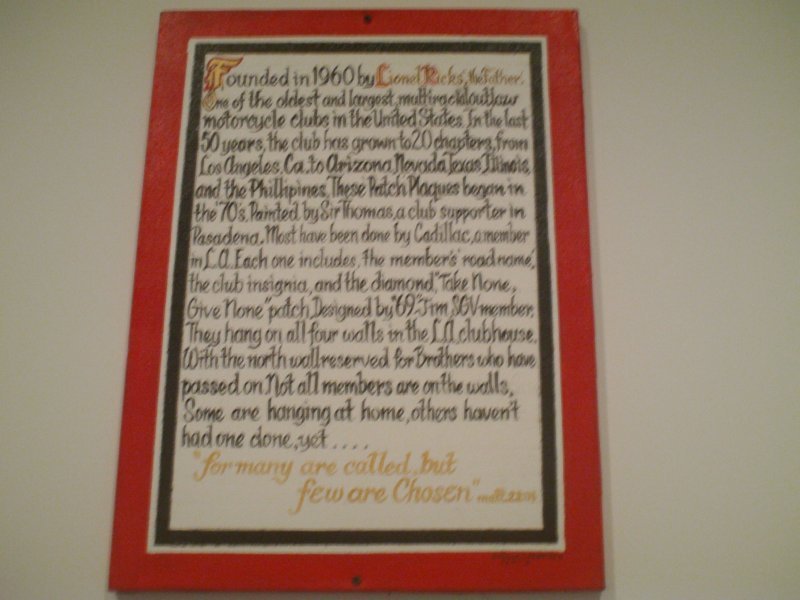 Founded in 1960 by Lionel Ricks, 'the Father'.
One of the oldest and largest, multiracial outlaw
motorcycle clubs in the United States. In the last
50 years, the club has grown to 20 chapters, from
Los Angeles, Ca. to Arizona, Nevada, Texas, Illinois,
and the Phillipines. These Patch Plaques began in
the '70's. Painted by Sir Thomas, a club supporter in
Pasadena. Most have been done by Cadillac, a member
in L.A. Each one includes, the member's 'road name',
the club insignia, and the diamond, "Take None,
Give None" patch. Designed by "69" Jim, SGV member.
They hang on all four walls in the L.A. clubhouse.
With the north wall reserved for Brothers who have
passed on. Not all members are on the walls,
Some are hanging at home, others haven't
had one done, yet ....
"for many are called, but
few are Chosen"